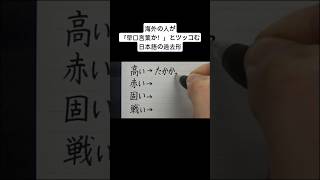 海外の人が
「早口言葉か！」とツッコむ
日本語の過去形
高い→たかか
赤い→
固い→
戦い→